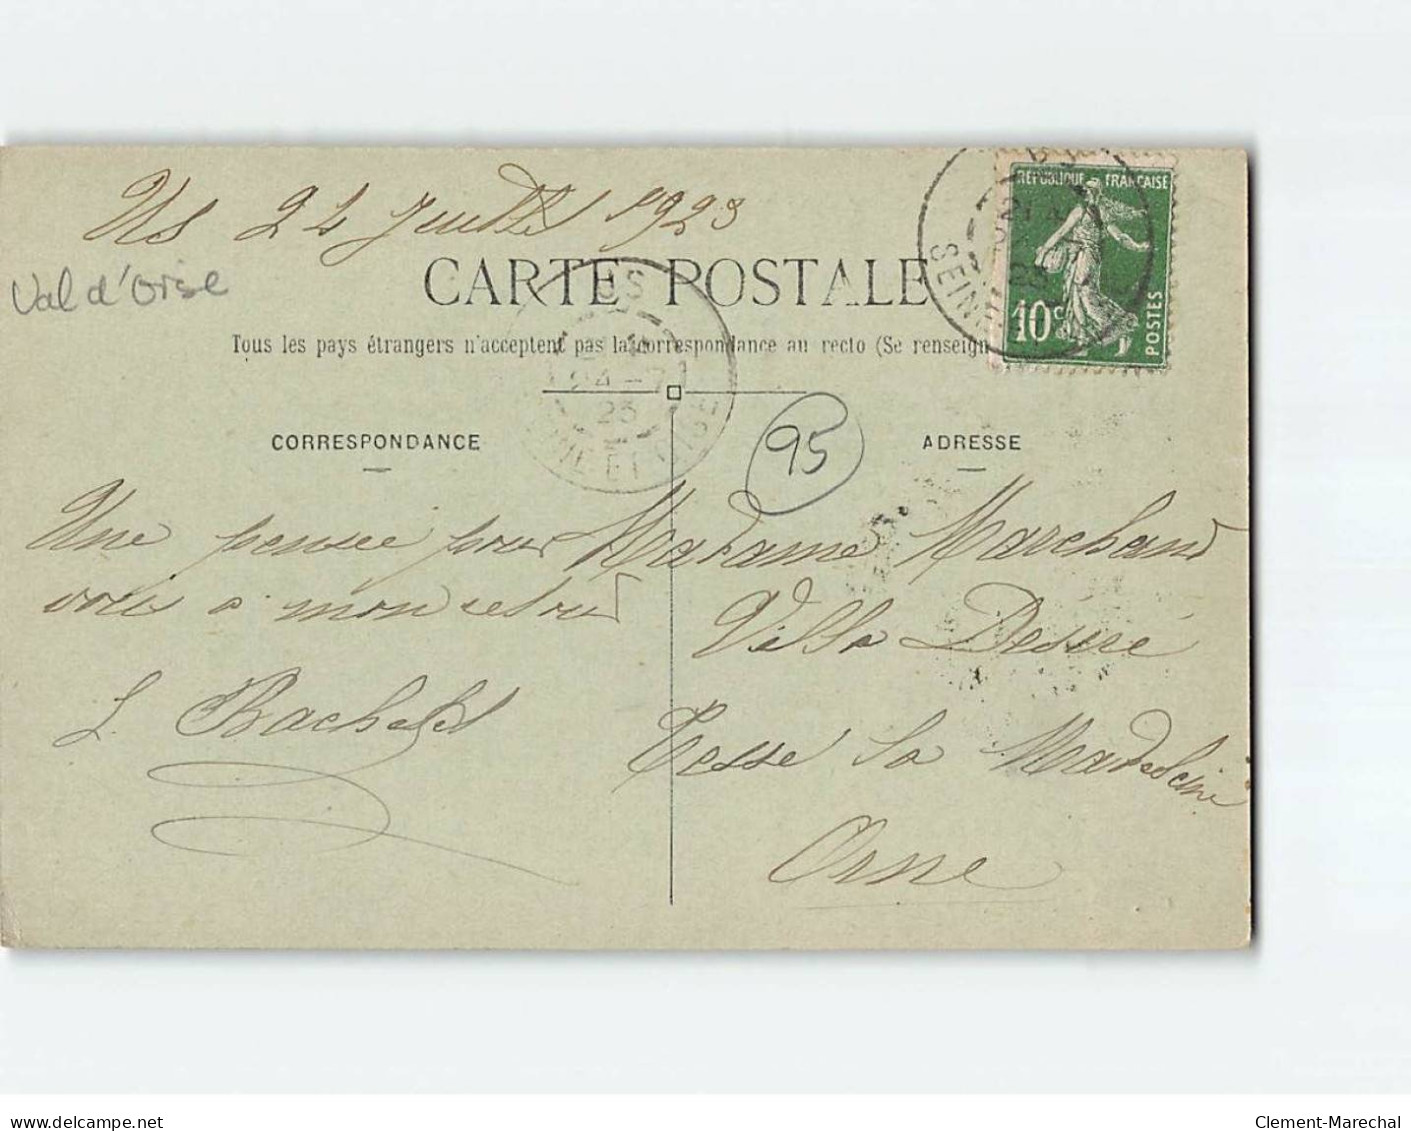 Us 24 Juillet 1923
Val d'Oise
CARTE POSTALE
Tous les pays étrangers n'acceptent pas la correspondance au recto (Se renseign
REPUBLIQUE FRANCAISE
10c
POSTES
SEINE
US
24 -7
23
CORRESPONDANCE
ADRESSE
95
Une pensée pour
vous a mon retour
L. Bachelet
Madame Marchand
Villa Desiré
Tesse la Madeleine
Orne
www.delcampe.net
Clement-Marechal